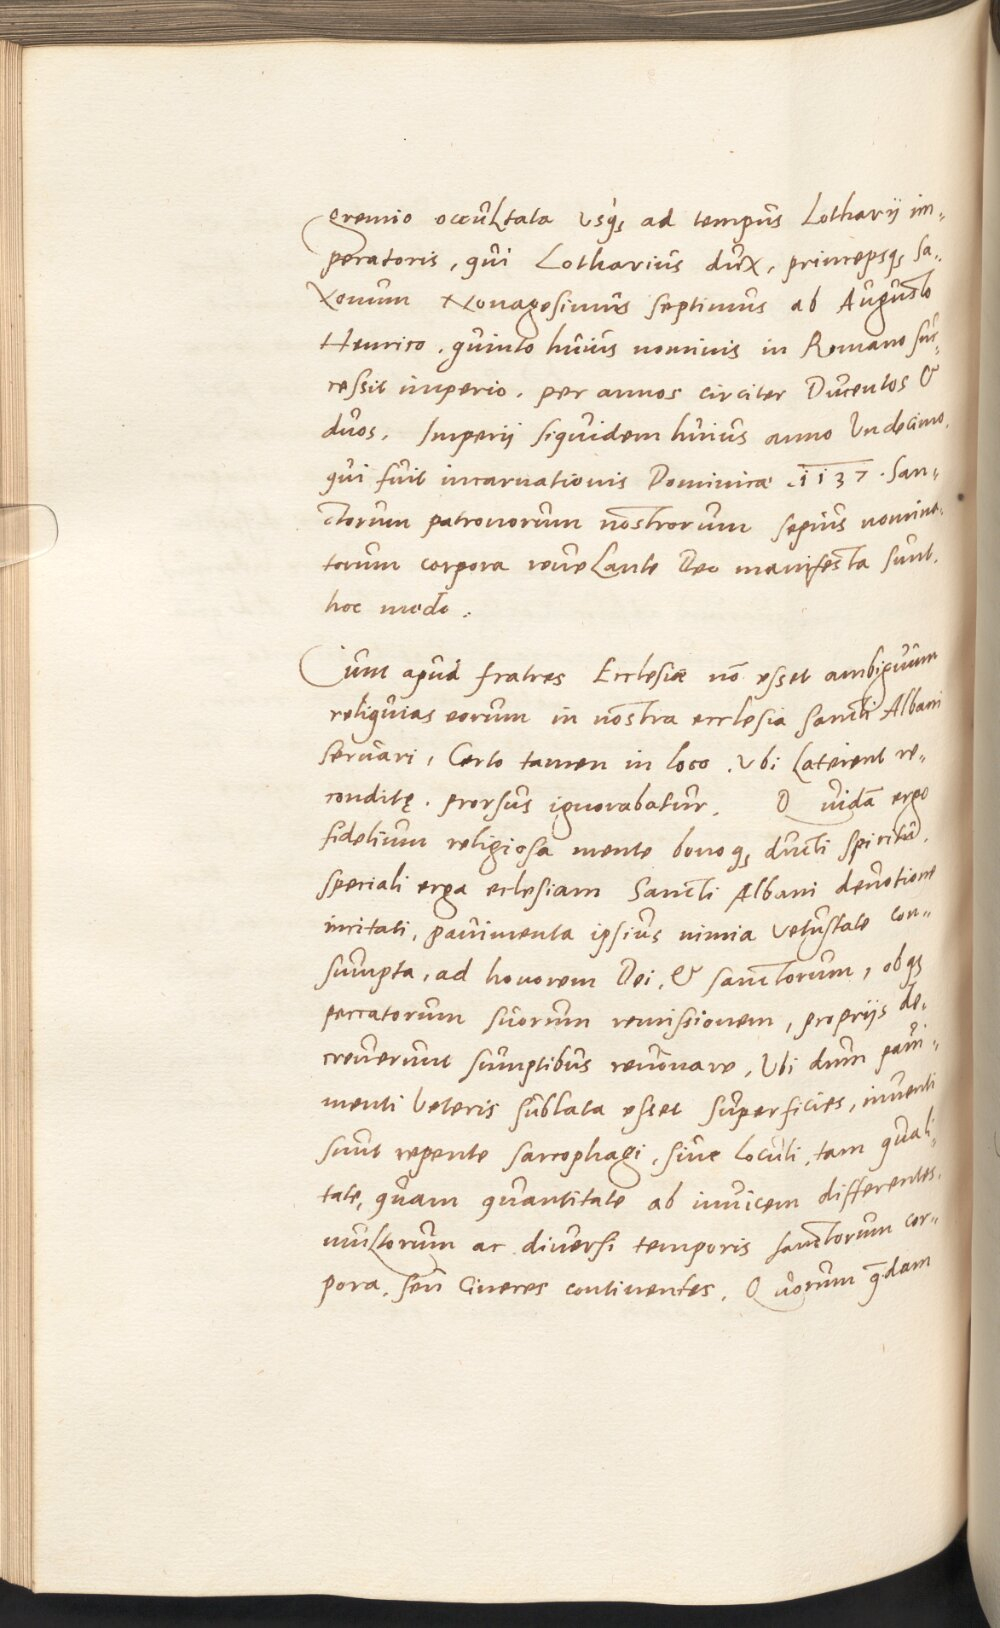 gremio occultata usq₃ ad tempus Lotharij im-
peratoris, qui Lotharius dux, princepsq₃ Sa-
xonum Nonagesimus septimus ab Augusto
Henrico. quinto huius nominis in Romano suc-
cessit imperio. per annos circiter Ducentos &
duos. Imperij siquidem huius anno Undecimo.
qui fuit incarnationis Dominicæ .1137. San-
ctorum patronorum nostrorum sepius nomina-
torum corpora revelante Deo manifesta sunt.
hoc modo:
Cum apud fratres Ecclesiæ nō esset ambiguum
reliquias eorum in nostra ecclesia Sancti Albani
servari, Certo tamen in loco. Ubi Laterent re-
conditę. prorsus ignorabatur. Quidā ergo
fidelium religiosa mente bonoq₃ ducti spiritu.
speciali erga eclesiam Sancti Albani devotione
incitati, pavimenta ipsius nimia vetustate con-
sumpta, ad honorem Dei, & sanctorum, obq₃
peccatorum suorum remissionem, proprijs de-
creverunt sumptibus renovare, Ubi dum pavi-
menti Veteris sublata esset superficies, inventi
sunt repente sarcophagi, sive loculi, tam quali-
tate, quam quantitate ab invicem differentes.
multorum ac diversi temporis sanctorum cor-
pora, seu Cineres continentes. Quorum q̄dam